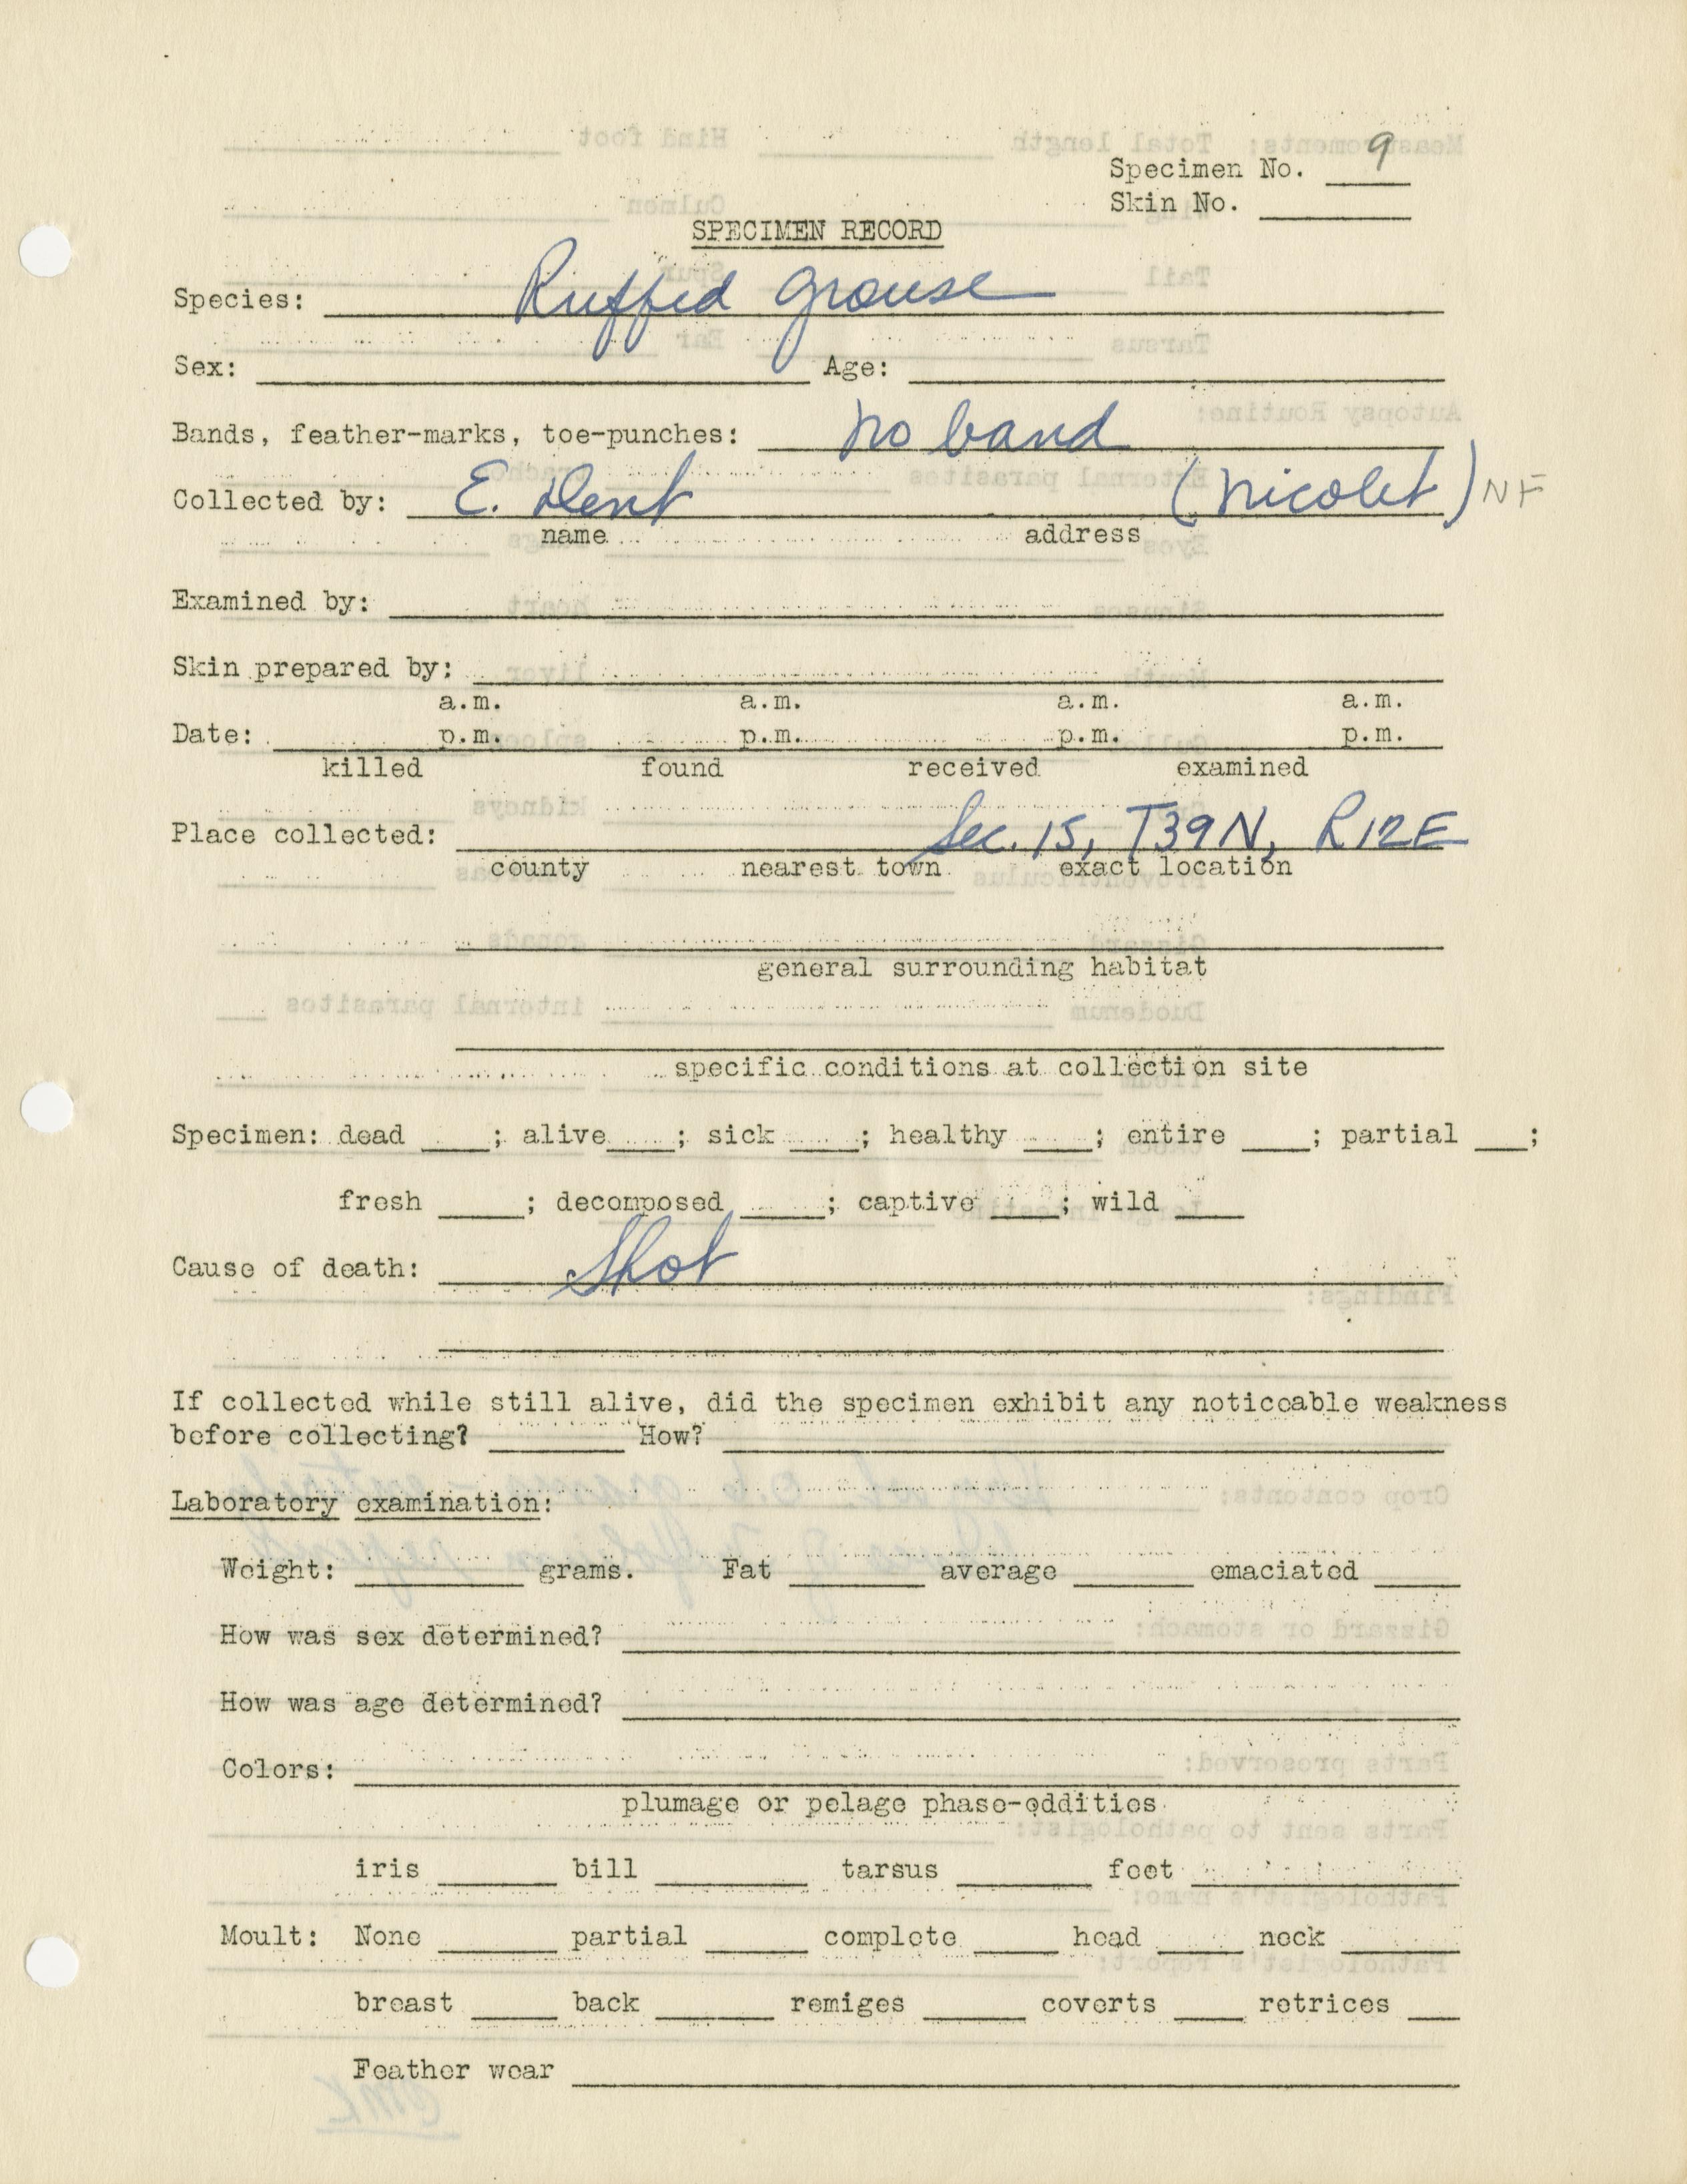 Specimen No. 9
Skin No. ____
SPECIMEN RECORD
Species: Ruffed grouse
Sex: ____ Age: ____
Bands, feather-marks, toe-punches: no band
Collected by: E. Dent (Nicolet) NF
name address
Examined by: ____
Skin prepared by: ____
a.m. a.m. a.m. a.m.
Date: p.m. p.m. p.m. p.m.
killed found received examined
Place collected: Sec. 15, T39N, R12E
county nearest town exact location
general surrounding habitat
specific conditions at collection site
Specimen: dead ____; alive ____; sick ____; healthy ____; entire ____; partial ____;
fresh ____; decomposed ____; captive ____; wild ____
Cause of death: Shot
If collected while still alive, did the specimen exhibit any noticeable weakness
before collecting? ____ How? ____
Laboratory examination:
Weight: ____ grams. Fat ____ average ____ emaciated ____
How was sex determined? ____
How was age determined? ____
Colors: ____
plumage or pelage phase-oddities
iris ____ bill ____ tarsus ____ foot ____
Moult: None ____ partial ____ complete ____ head ____ neck ____
breast ____ back ____ remiges ____ coverts ____ retrices ____
Feather wear ____